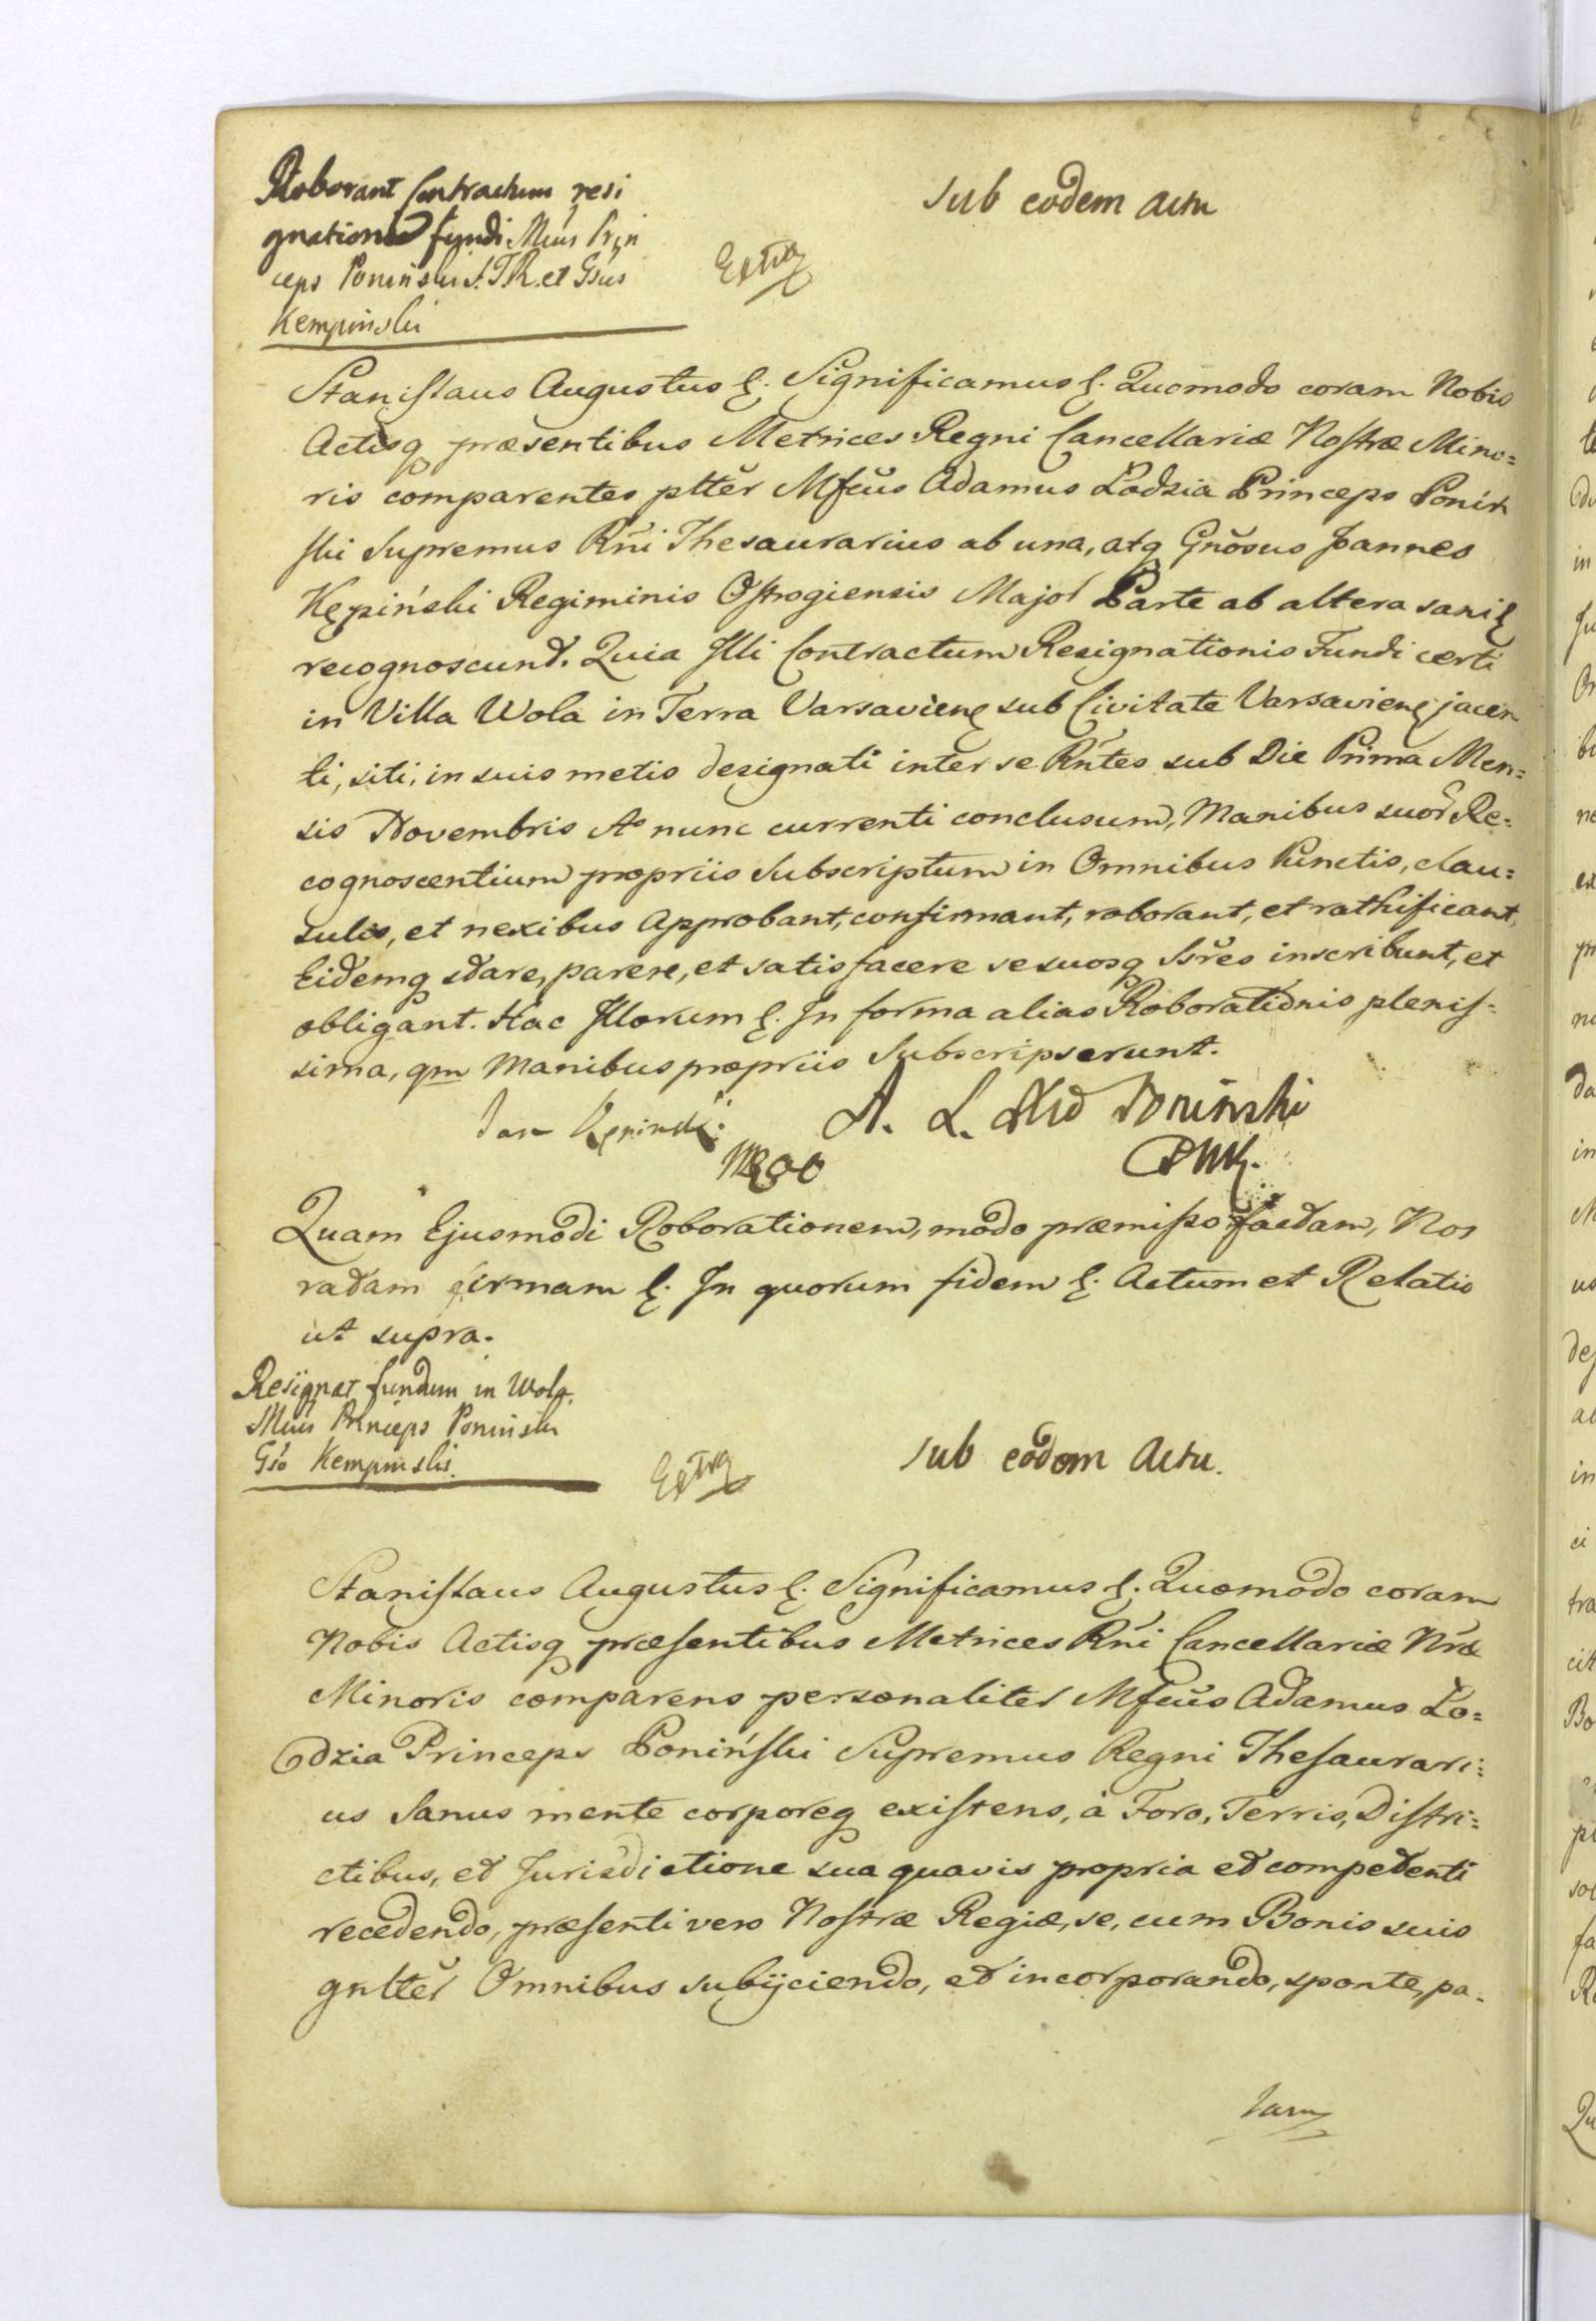 Roborant Contractum resi
gnationis fundi Mŭs Prin
ceps Poniński S.T.R. et Gsŭs
Kempinski
Sub eodem actu
Extra
Stanislaus Augustus &. Significamus &. Quomodo coram Nobis
Actisq præsentibus Metrices Regni Cancellariæ Nostræ Mino=
ris comparentes pltĕr Mfcŭs Adamus Łodzia Princeps Poniń
ski Supremus Rńi Thesaurarius ab una, atq Gnŏsus Joannes
Kępiński Regiminis Ostrogiensis Major Parte ab altera sani &
recognoscunt. Quia Illi Contractum Resignationis Fundi certi
in Villa Wola in Terra Varsavien & sub Civitate Varsavien & jacen
ti, siti, in suis metis designati inter se Rńtes sub Die Prima Men=
sis Novembris Ao nunc currenti conclusum, Manibus suor Re=
cognoscentium propriis Subscriptum in Omnibus Punctis, clau=
sulis, et nexibus Approbant, confirmant, roborant, et rathificant,
Eidemq stare, parere, et satisfacere se suosq Ssřes inscribunt, et
obligant. Hac Illorum &. In forma alias Roborationis plenis=
sima, qm Manibus propriis Subscripserunt.
Jan Kępiński
A. L. Xże Poniński
PWK.
Quam Ejusmodi Roborationem, modo præmisso factam, Nos
ratam firmam &. In quorum fidem &. Actum et Relatio
ut supra.
Resignat fundum in Wola
Mŭs Princeps Poninski
Gso Kempinski.
Extra
Sub eodem Actu.
Stanislaus Augustus &. Significamus &. Quomodo coram
Nobis Actisq præsentibus Metrices Rńi Cancellariæ Nræ
Minoris comparens personaliter Mfcŭs Adamus Lo=
dzia Princeps Poniński Supremus Regni Thesaurari=
us Sanus mente corporeq existens, à Foro, Terris, Distri=
ctibus, et Jurisdictione sua quavis propria et competenti
recedendo, præsenti vero Nostræ Regiæ, se, cum Bonis suis
gnltĕr Omnibus subijciendo, et incorporando, sponte, pa-